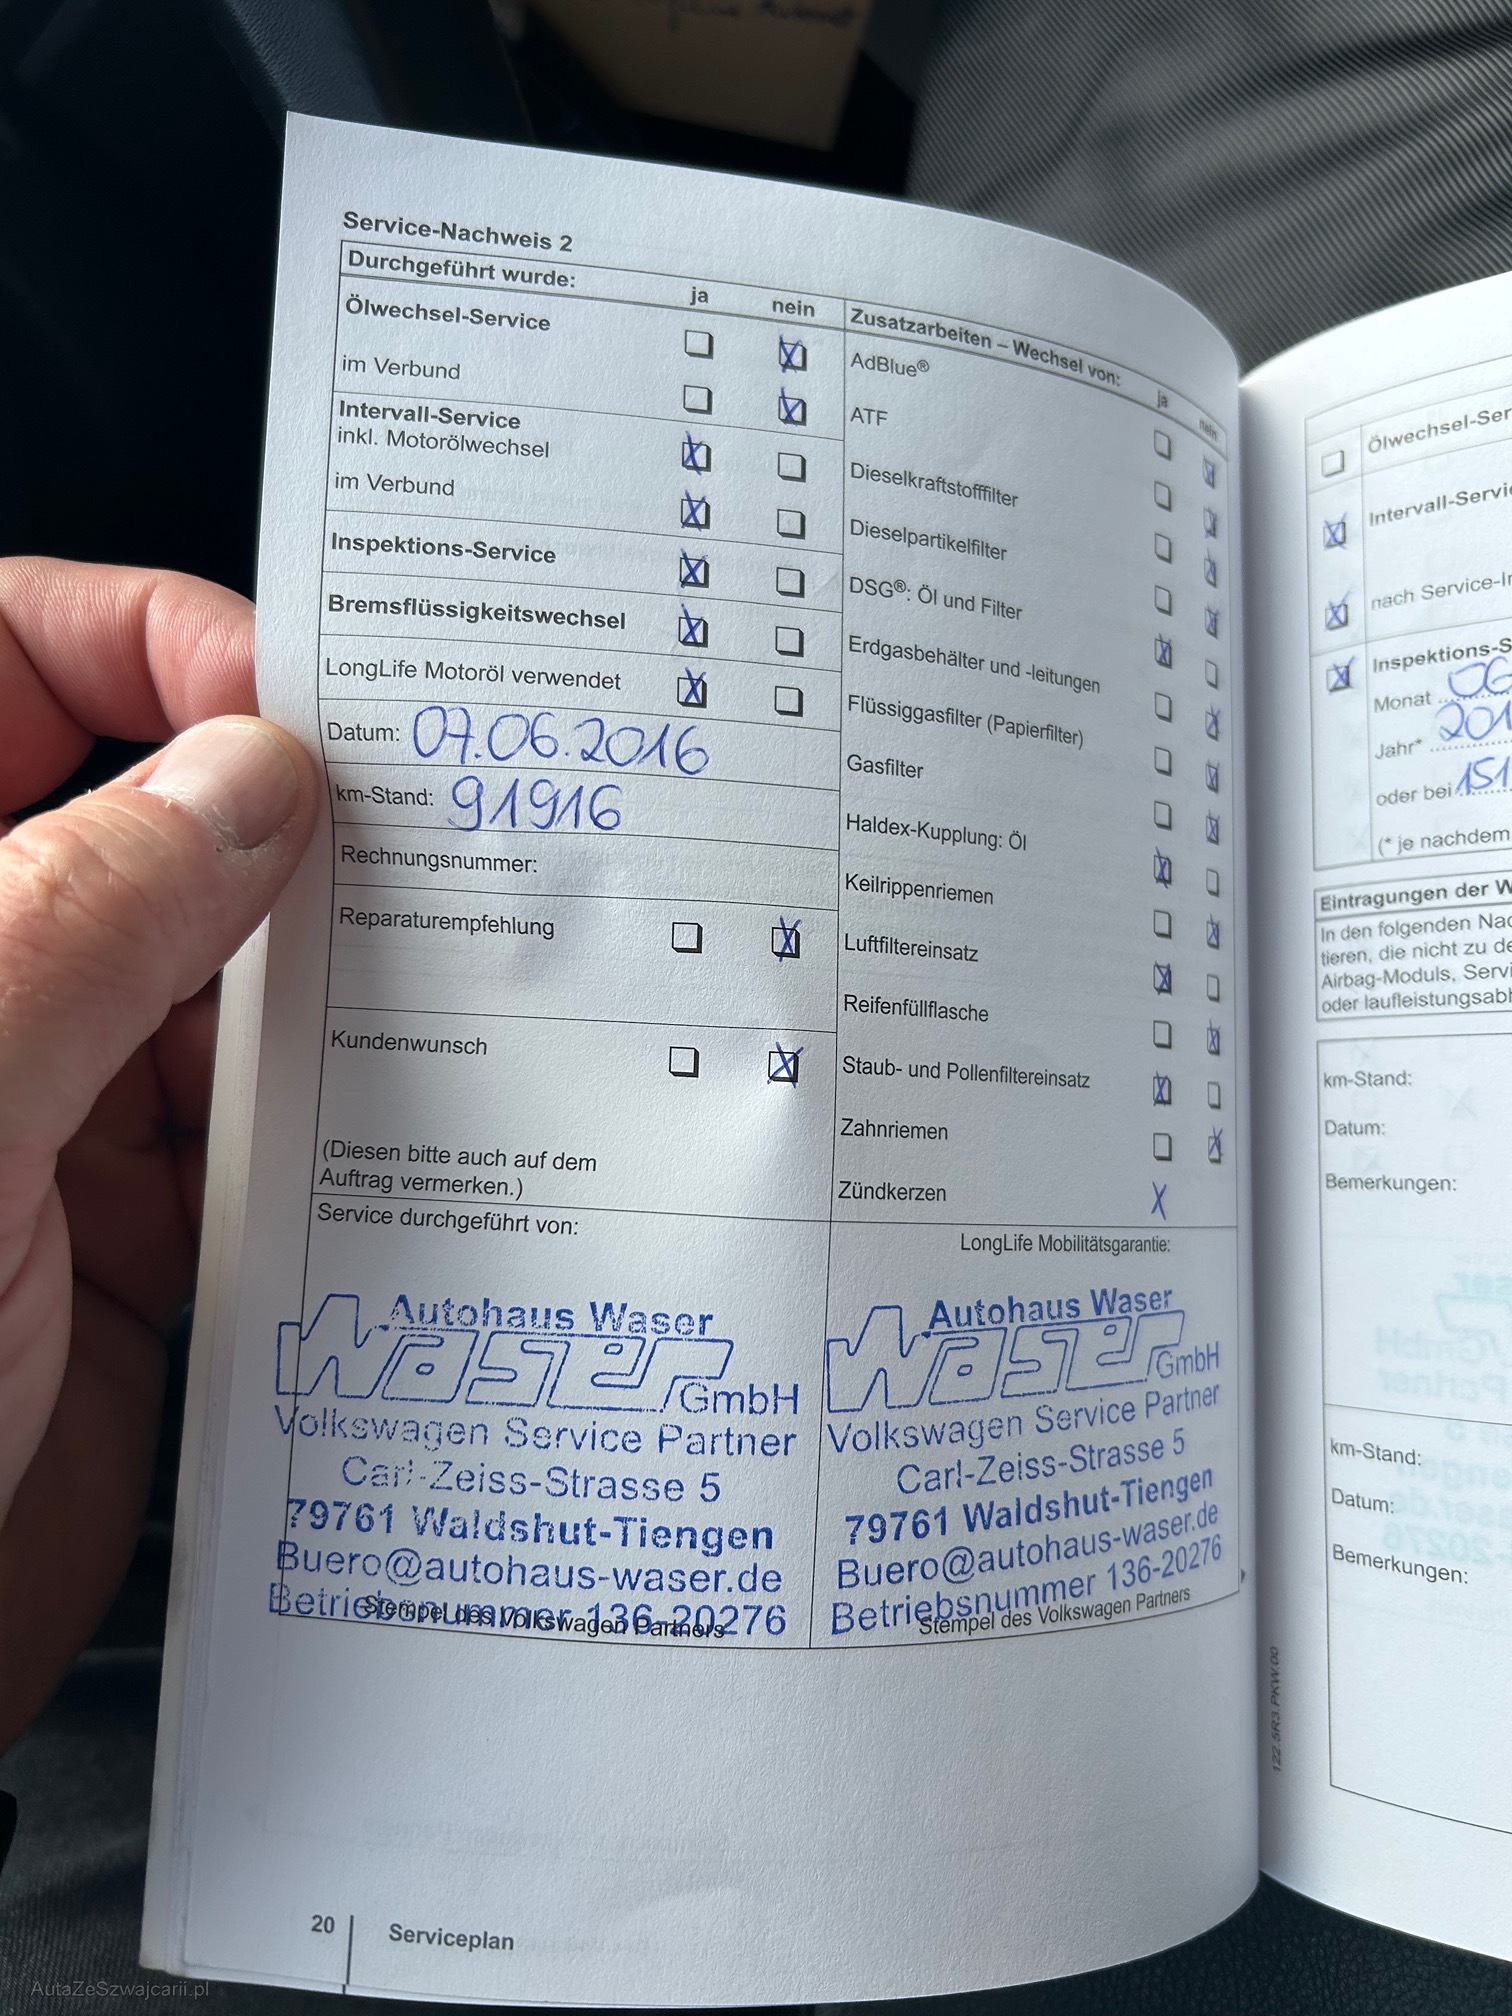 Service-Nachweis 2
Durchgeführt wurde:
ja
nein
Ölwechsel-Service
im Verbund
Intervall-Service
inkl. Motorölwechsel
im Verbund
Inspektions-Service
Bremsflüssigkeitswechsel
LongLife Motoröl verwendet
Datum: 07.06.2016
km-Stand: 91916
Rechnungsnummer:
Reparaturempfehlung
Kundenwunsch
(Diesen bitte auch auf dem
Auftrag vermerken.)
Service durchgeführt von:
Autohaus Waser
Waser
GmbH
Volkswagen Service Partner
Carl-Zeiss-Strasse 5
79761 Waldshut-Tiengen
Buero@autohaus-waser.de
Betriebsnummer 136-20276
Stempel des Volkswagen Partners
Zusatzarbeiten – Wechsel von:
ja
nein
AdBlue®
ATF
Dieselkraftstofffilter
Dieselpartikelfilter
DSG®: Öl und Filter
Erdgasbehälter und -leitungen
Flüssiggasfilter (Papierfilter)
Gasfilter
Haldex-Kupplung: Öl
Keilrippenriemen
Luftfiltereinsatz
Reifenfüllflasche
Staub- und Pollenfiltereinsatz
Zahnriemen
Zündkerzen X
LongLife Mobilitätsgarantie:
Autohaus Waser
Waser
GmbH
Volkswagen Service Partner
Carl-Zeiss-Strasse 5
79761 Waldshut-Tiengen
Buero@autohaus-waser.de
Betriebsnummer 136-20276
Stempel des Volkswagen Partners
20
Serviceplan
122.5R3.PKW.00
Ölwechsel-Ser
Intervall-Servi
nach Service-In
Inspektions-S
Monat 06
Jahr* 201
oder bei 151
(* je nachdem
Eintragungen der W
In den folgenden Nac
tieren, die nicht zu de
Airbag-Moduls, Servi
oder laufleistungsabh
km-Stand:
Datum:
Bemerkungen:
km-Stand:
Datum:
Bemerkungen:
AutaZeSzwajcarii.pl